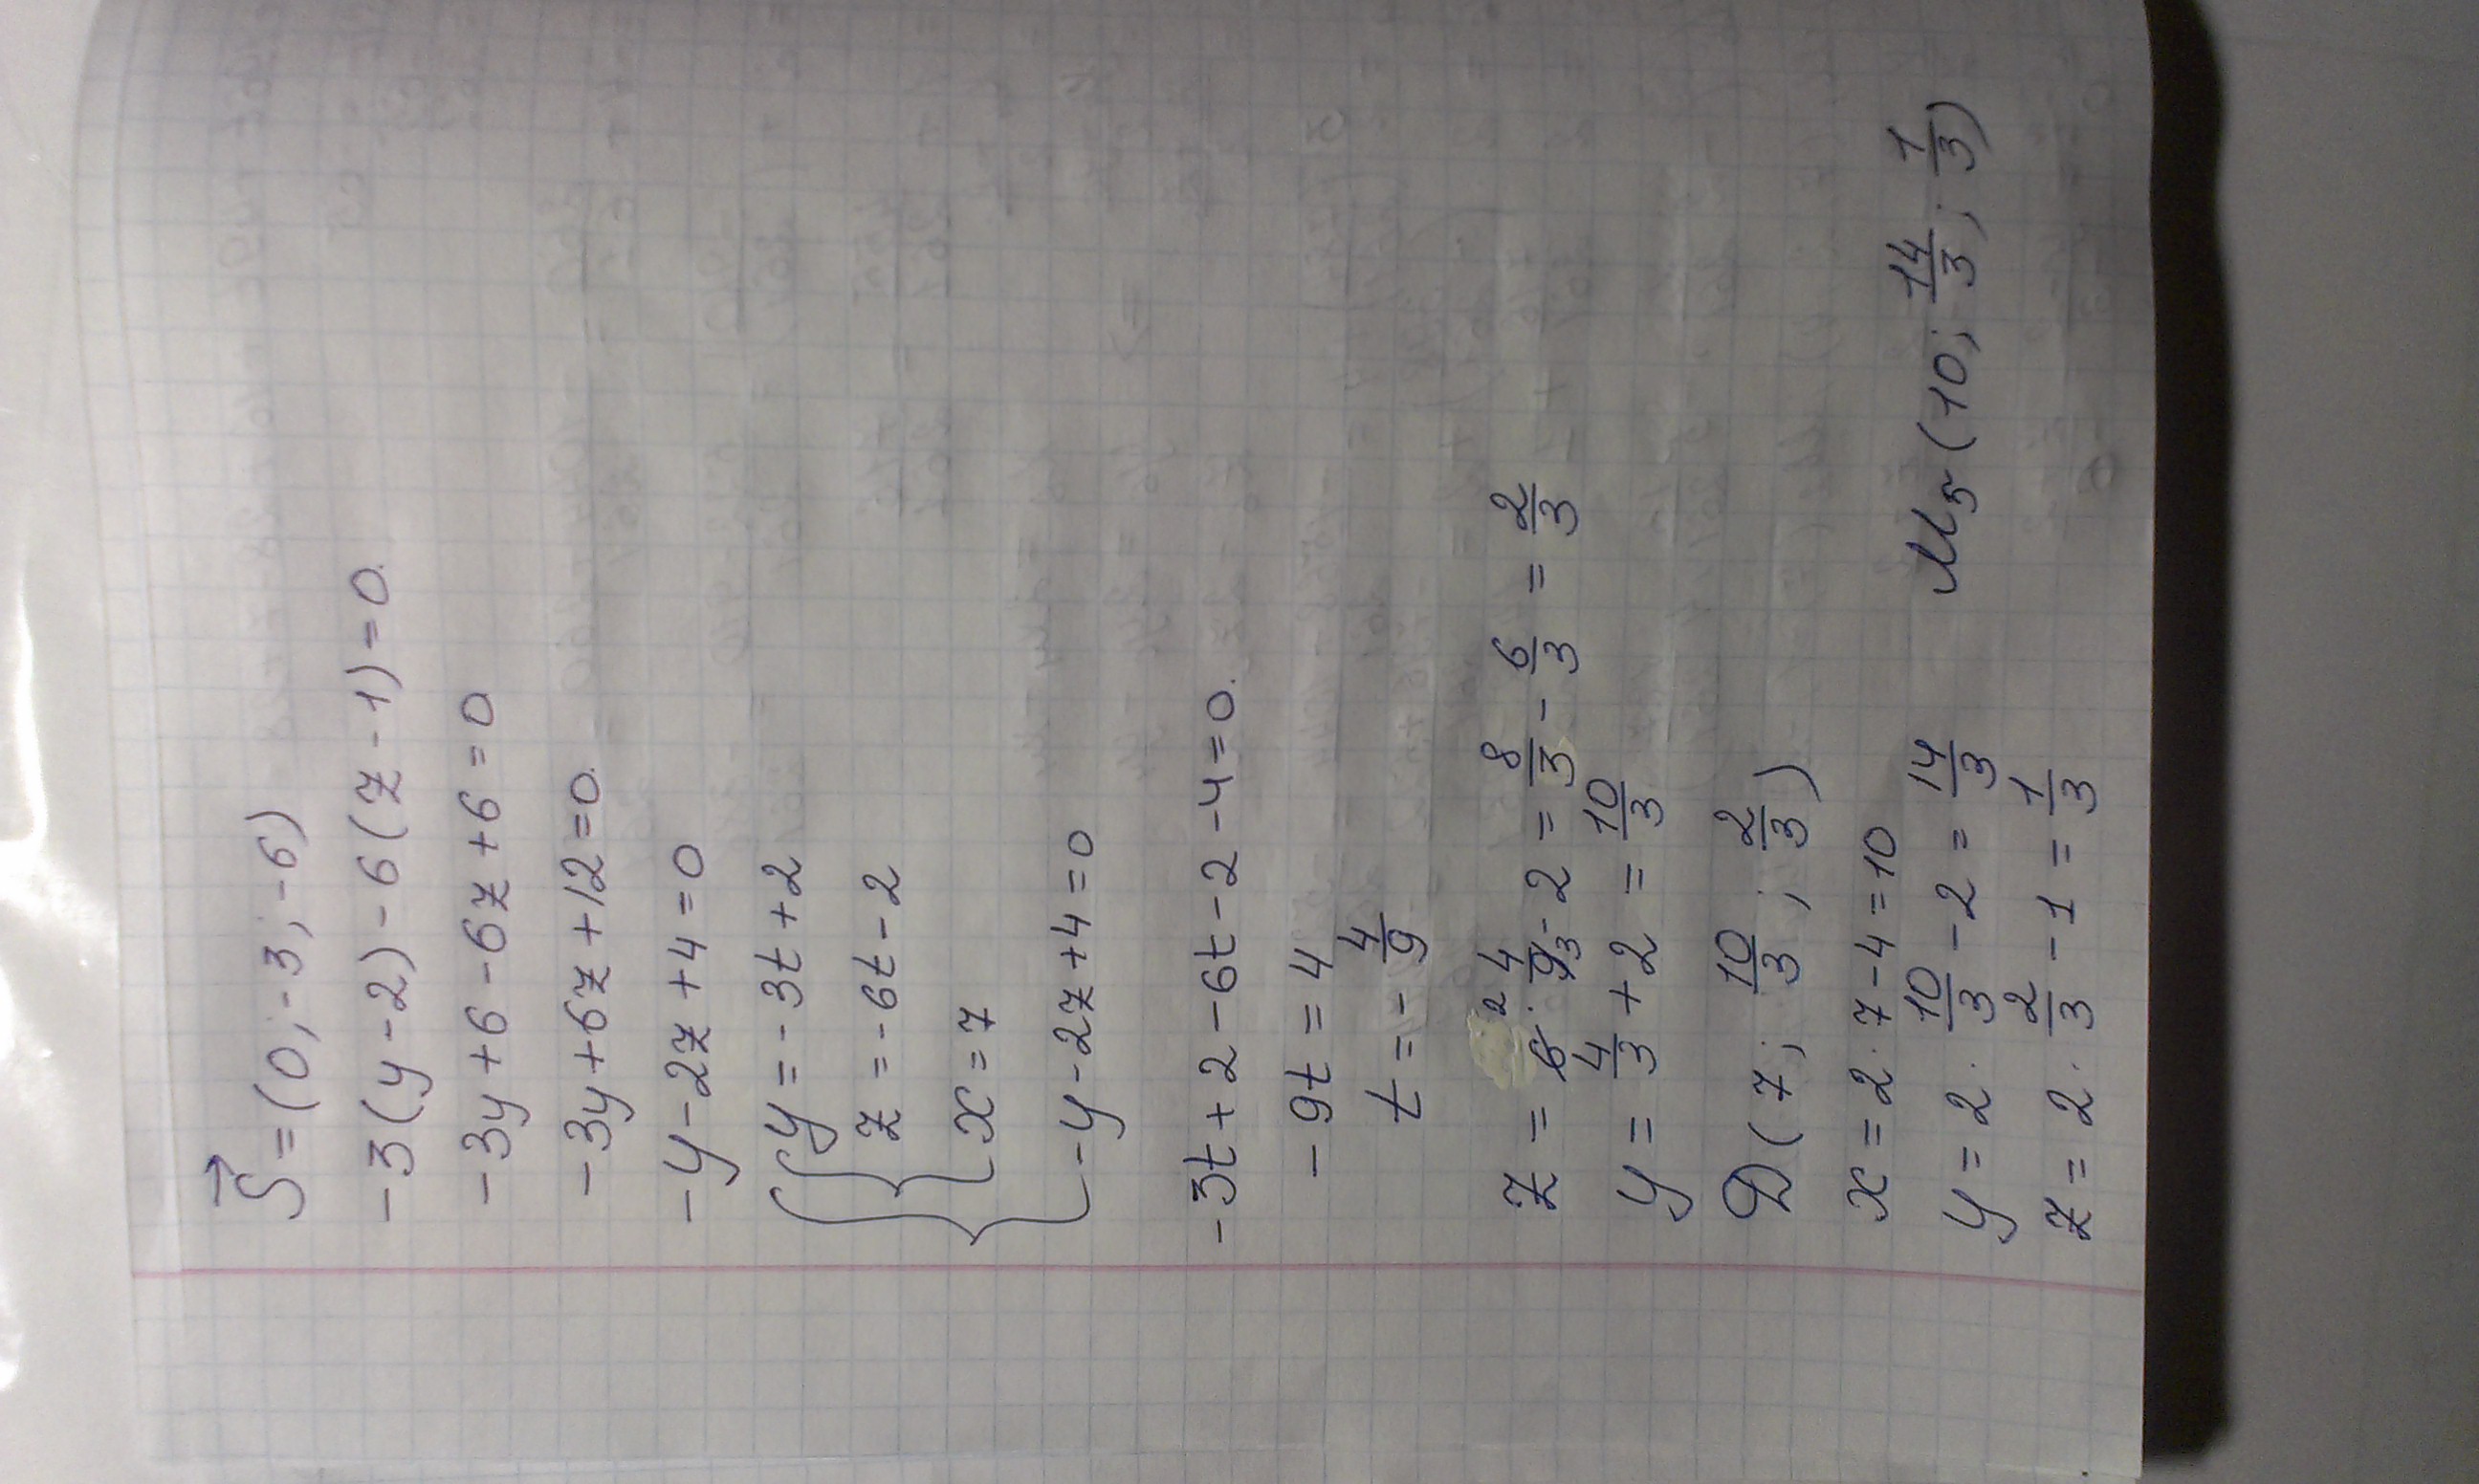 S⃗ = (0; -3; -6)
-3(y-2)-6(z-1)=0.
-3y+6-6z+6=0
-3y+6z+12=0.
-y-2z+4=0
y=-3t+2
z=-6t-2
x=7
-y-2z+4=0
-3t+2-6t-2-4=0.
-9t=4
t=-4/9
z=6·2 4/9 3-2=8/3-6/3=2/3
y=4/3+2=10/3
D(7; 10/3; 2/3)
x=2·7-4=10
y=2·10/3-2=14/3 M5(10; 14/3; 1/3)
z=2·2/3-1=1/3